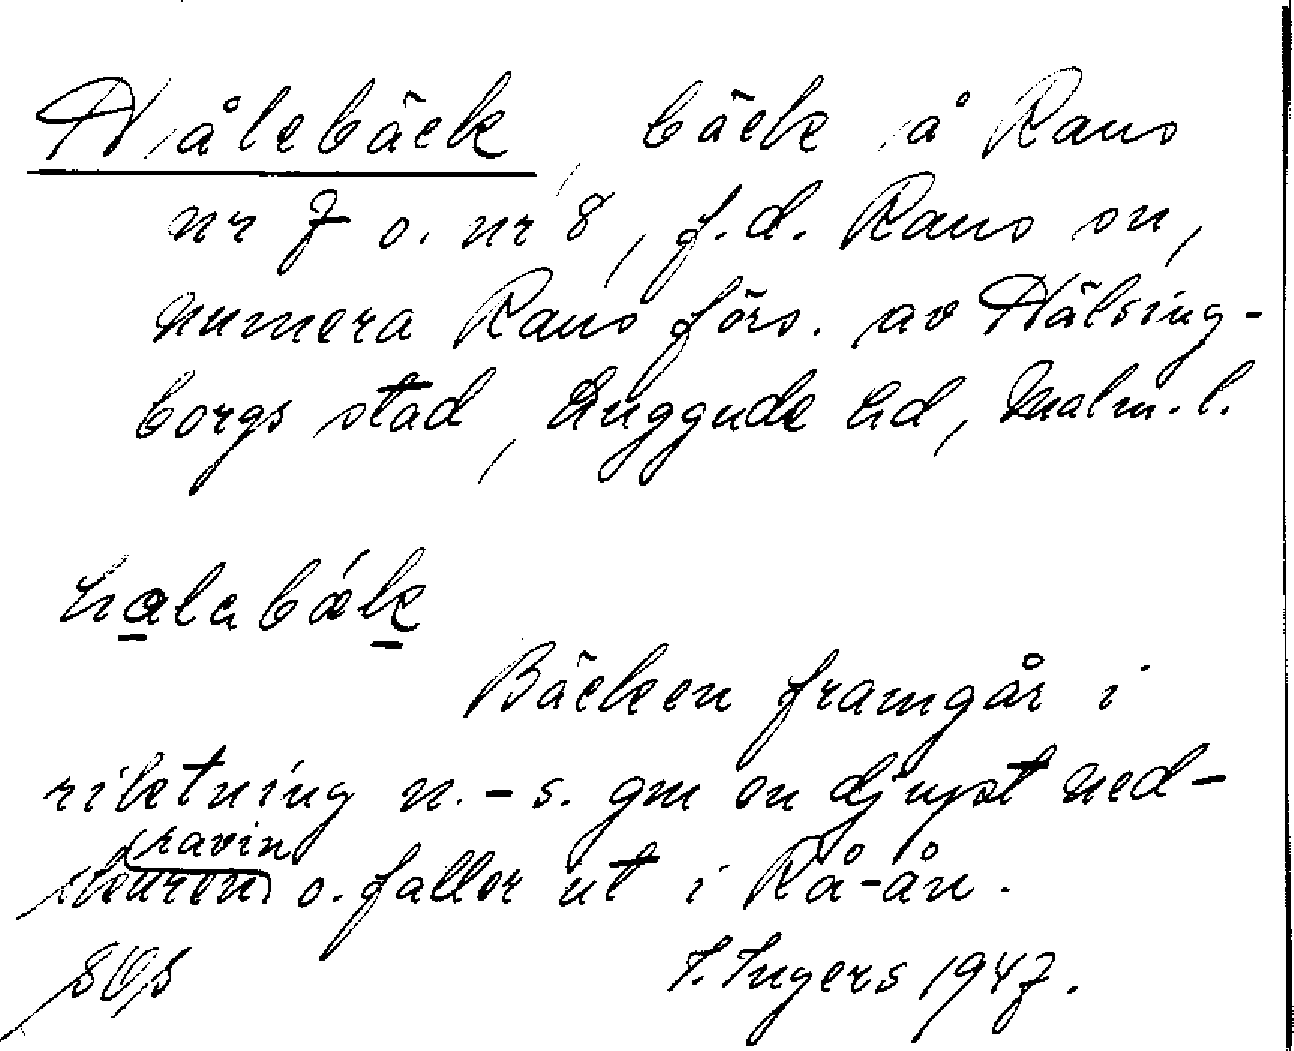 Hålebäck, bäck å Raus
nr 7 o. nr 8, f.d. Raus sn,
numera Raus förs. av Hälsing-
borgs stad, Luggude hd, Malm. l.
halabäk
Bäcken framgår i
riktning n. - s. gm en djupt ned-
ravin
skuren o. faller ut i Rå-ån.
I. Ingers 1947.